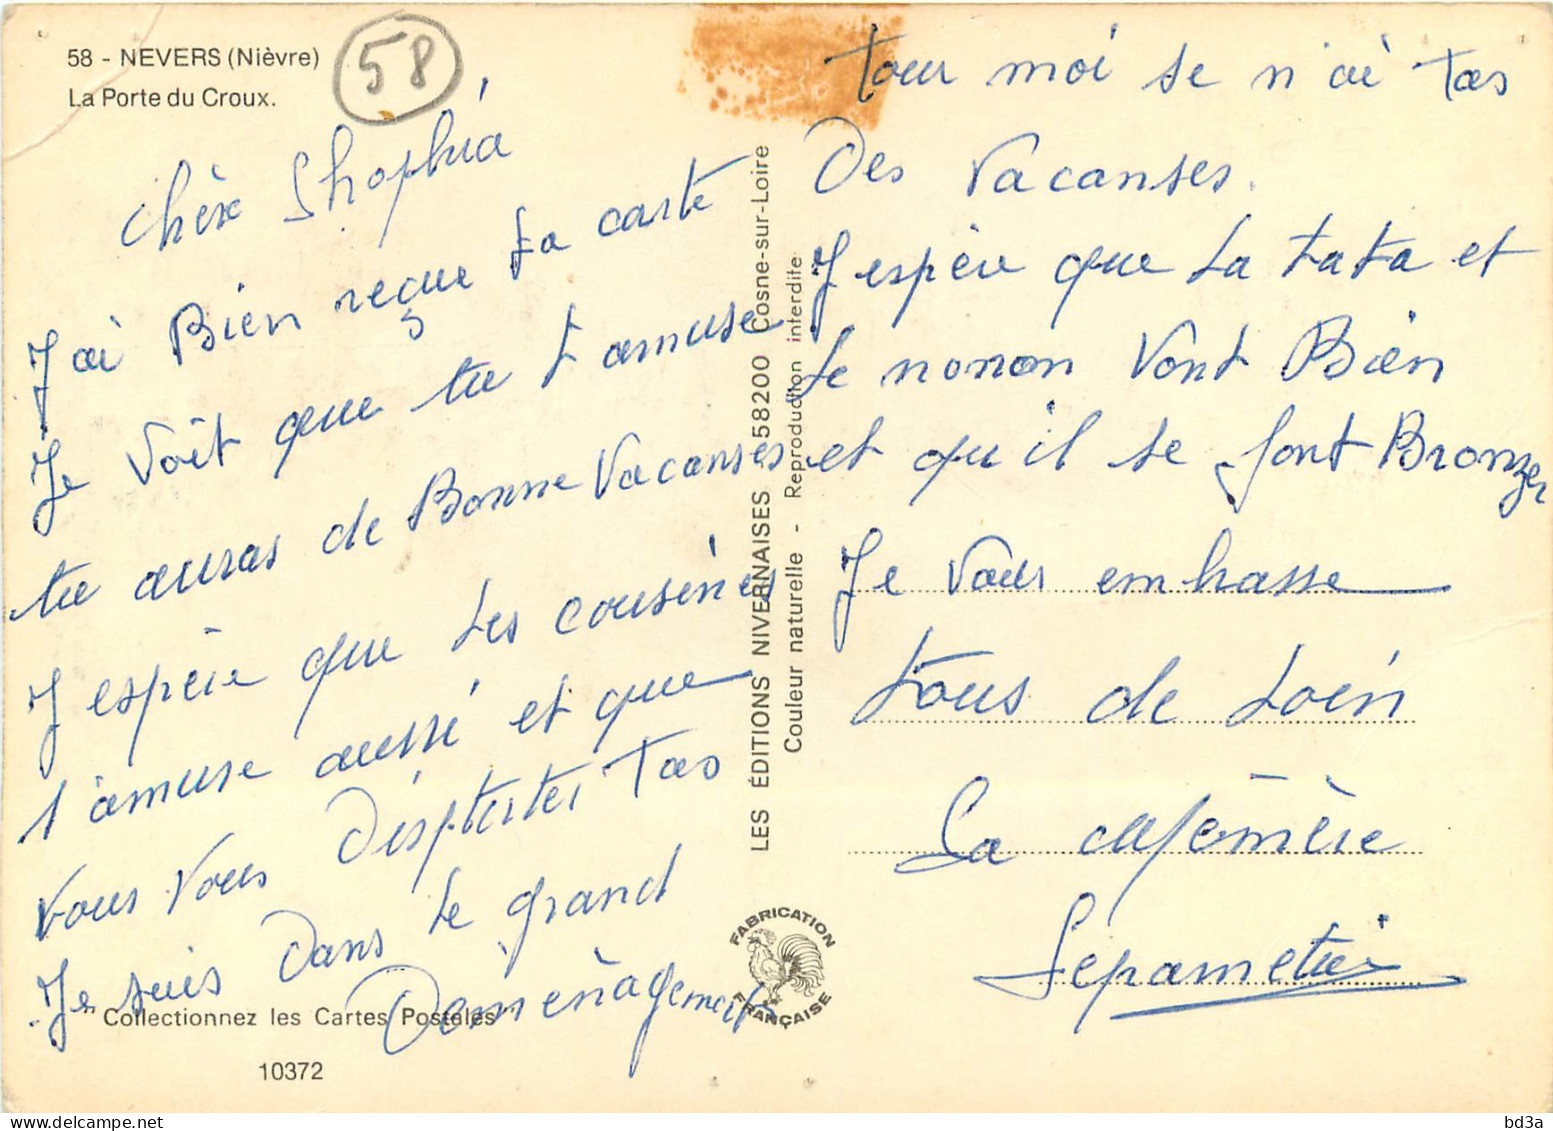 58 - NEVERS (Nièvre)
La Porte du Croux.
58
Chère Shophia
J'ai Bien reçue ta carte
Je Voit que tu t amuse
tu auras de Bonne Vacanses
J espère que Les cousines
s'amuse aussi et que
vous vous
Tas
Je suis Dans Le grand
Demènagement
" Collectionnez les Cartes Postales "
10372
LES ÉDITIONS NIVERNAISES 58200 Cosne-sur-Loire
Couleur naturelle - Reproduction interdite
FABRICATION
FRANÇAISE
Pour moi se n'ai Pas
Des Vacanses.
J espère que La tata et
Le nonon Vont Bien
et qu'il se font Bronzer
Je Vous embrasse
tous de Loin
La
bd3a